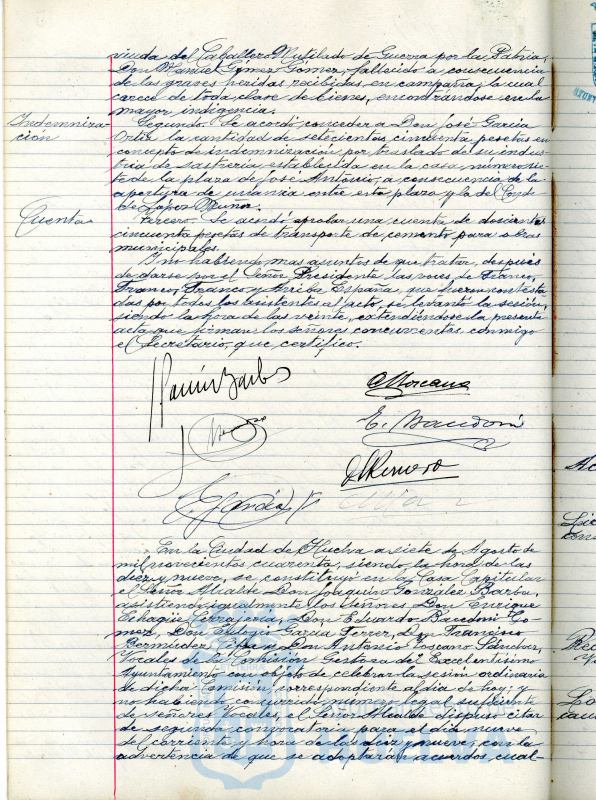 viuda del Caballero Mutilado de Guerra por la Patria,
Don Manuel Gómez Gómez, fallecido a consecuencia
de las graves heridas recibidas en campaña, la cual
carece de toda clase de bienes, encontrándose en la
mayor indigencia.
Indemniza-
ción
Segundo. Se acordó conceder a Don José García
Ortiz la cantidad de setecientas cincuenta pesetas en
concepto de indemnización por traslado de su indus-
tria de sastrería establecida en la casa número sie-
te de la plaza de José Antonio, a consecuencia de la
apertura de una vía entre esta plaza y la del Conde
de López Muñoz.
Cuenta
Tercero. Se acordó aprobar una cuenta de doscientas
cincuenta pesetas de transporte de cemento para obras
municipales.
Y no habiendo mas asuntos de que tratar, después
de darse por el Señor Presidente las voces de Franco,
Franco, Franco y Arriba España, que fueron contesta-
das por todos los asistentes al acto, se levantó la sesión,
siendo la hora de las veinte, extendiéndose la presente
acta que firman los señores concurrentes conmigo
el Secretario, que certifico.
E. Bacedoni
En la Ciudad de Huelva a siete de Agosto de
mil novecientos cuarenta, siendo la hora de las
diez y nueve, se constituyó en la Casa Capitular
el Señor Alcalde Don Joaquín González Barba,
asistiendo igualmente los señores Don Enrique
Echagüe Don Eduardo Bacedoni Gó-
mez, Don Eulogio García Ferrer, Don Francisco
Bermúdez y Don Antonio Toscano Sánchez,
Vocales de la Comisión Gestora del Excelentísimo
Ayuntamiento con objeto de celebrar la sesión ordinaria
de dicha Comisión correspondiente al día de hoy; y
no habiendo concurrido número legal suficiente
de señores Vocales, el Señor Alcalde dispuso citar
de segunda convocatoria para el día nueve
del corriente y hora de las diez y nueve, con la
advertencia de que se adoptarán acuerdos cual-